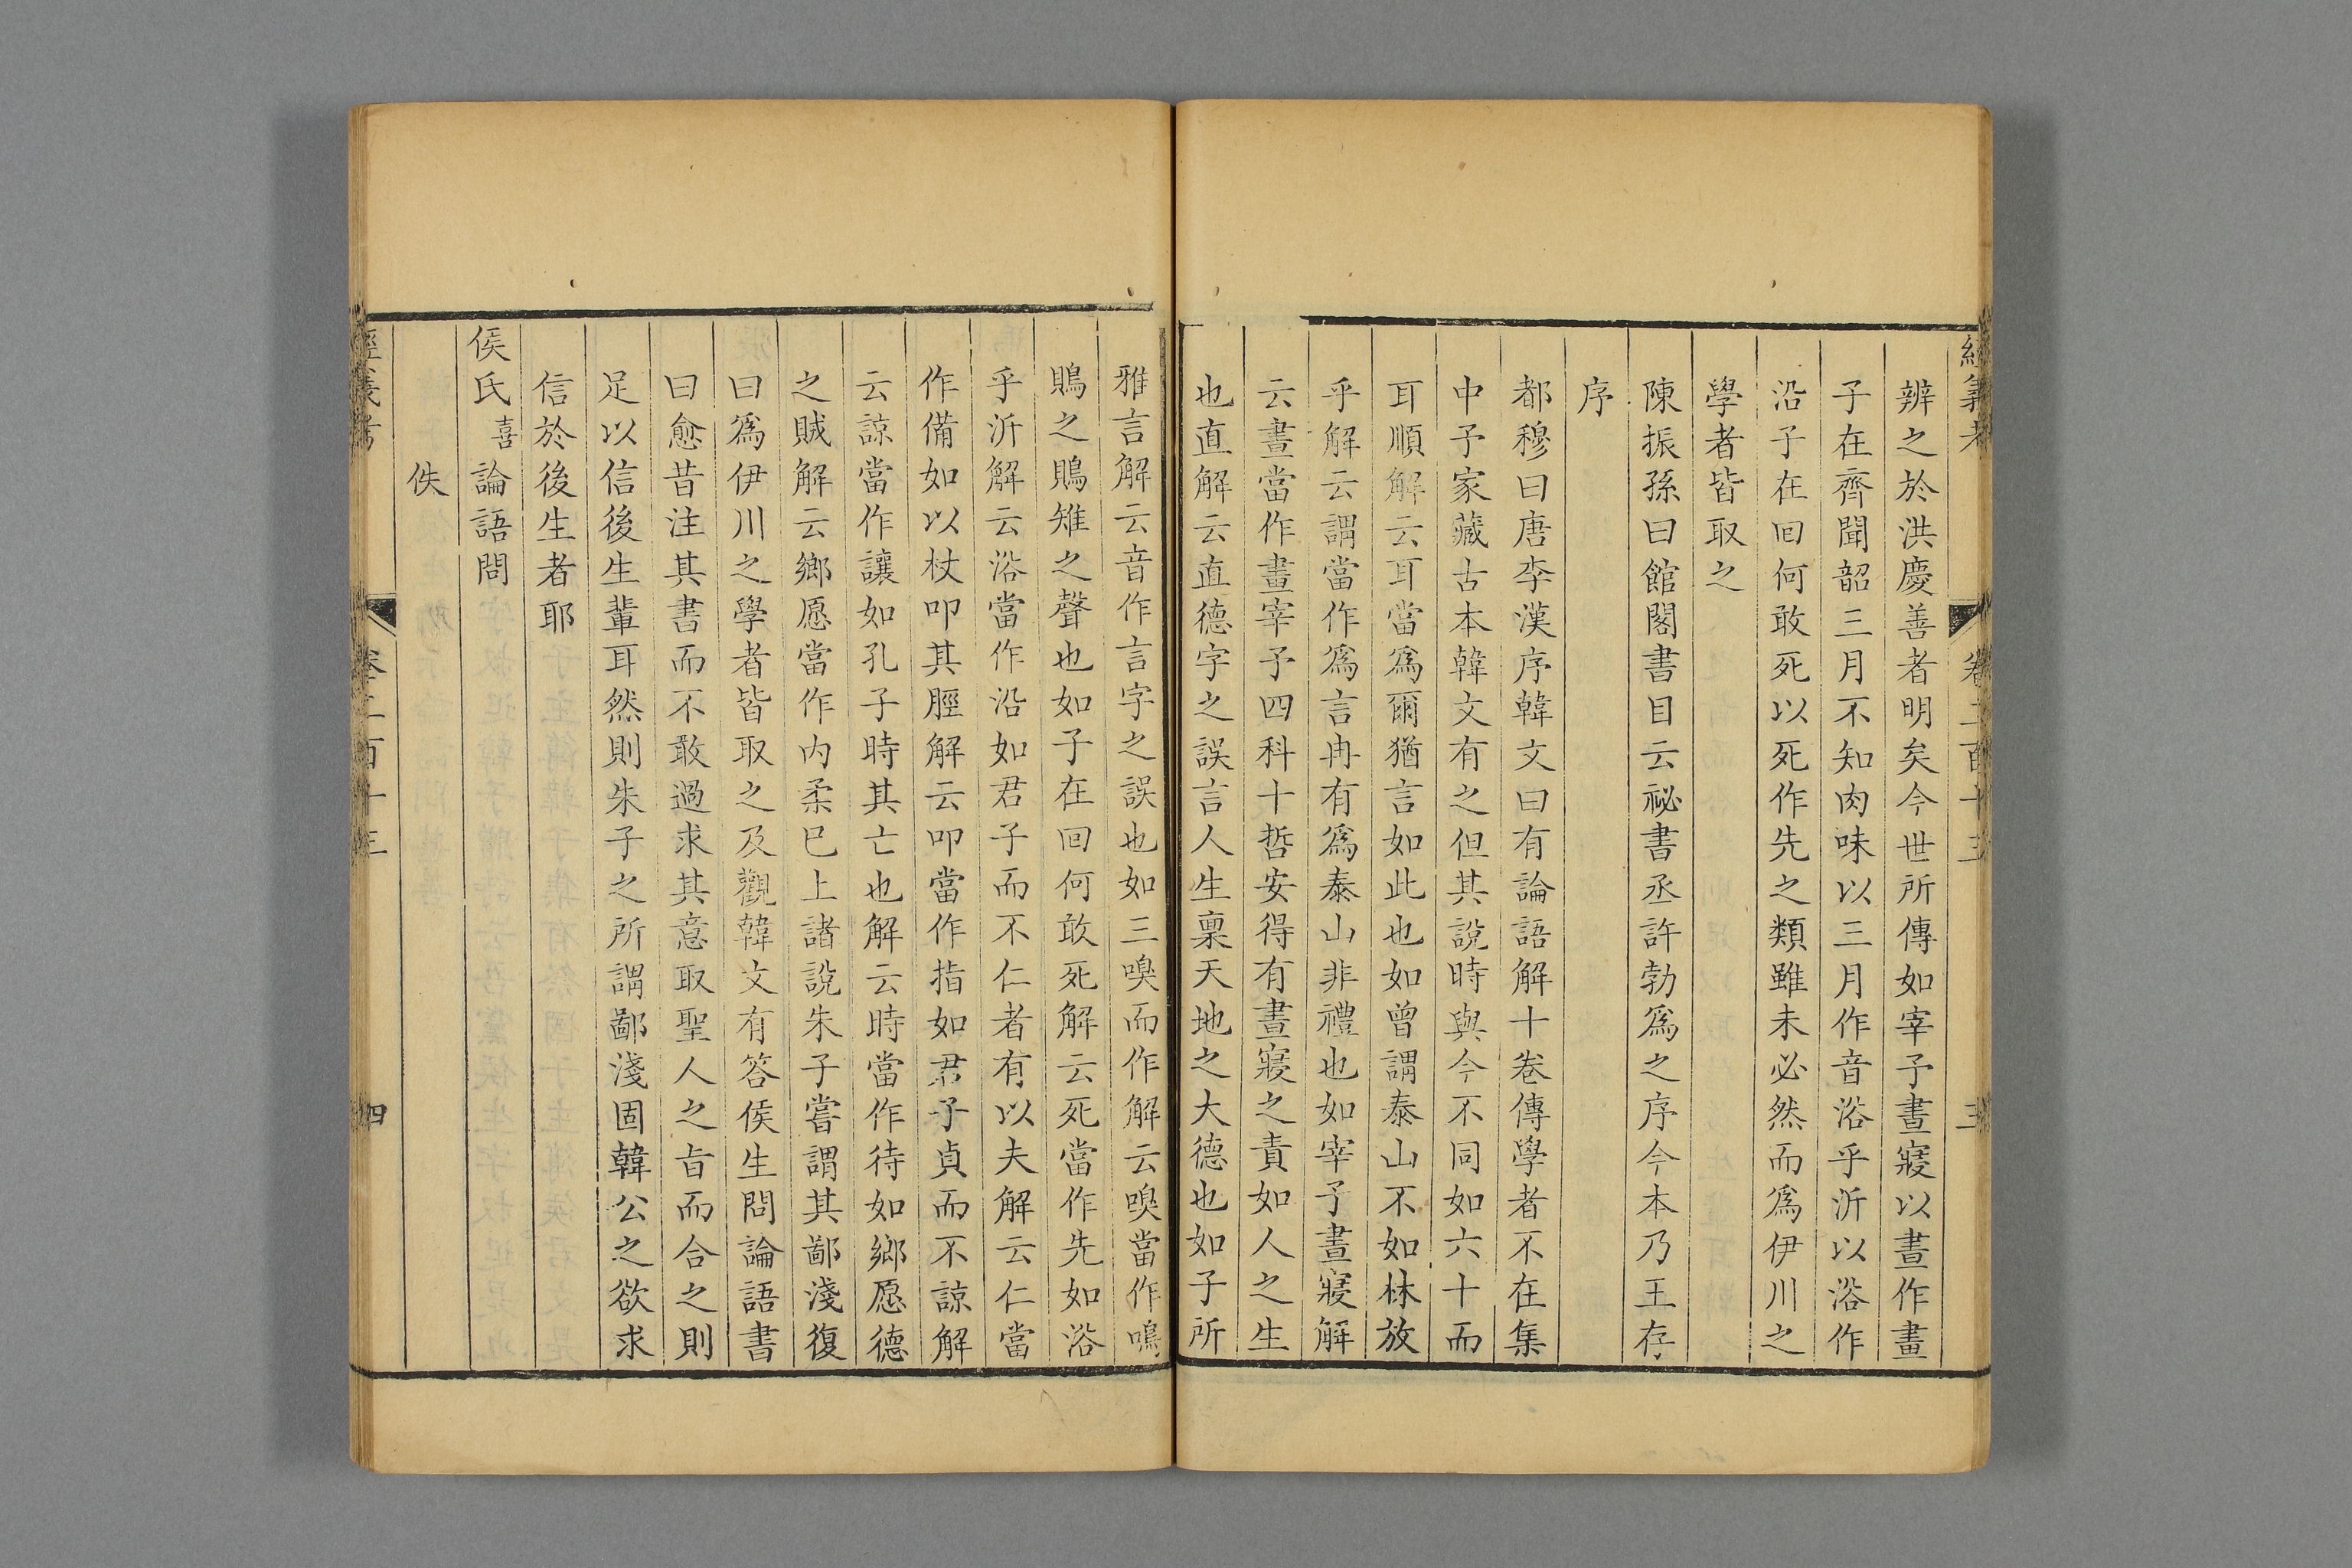 辨之於洪慶善者明矣今世所傳如宰予晝寢以晝作畫
子在齊聞韶三月不知肉味以三月作音浴乎沂以浴作
沿子在回何敢死以死作先之類雖未必然而爲伊川之
學者皆取之
陳振孫曰館閣書目云祕書丞許勃爲之序今本乃王存
序
都穆曰唐李漢序韓文曰有論語解十卷傳學者不在集
中予家藏古本韓文有之但其說時與今不同如六十而
耳順解云耳當爲爾猶言如此也如曾謂泰山不如林放
乎解云謂當作爲言冉有爲泰山非禮也如宰予晝寢解
云晝當作畫宰予四科十哲安得有晝寢之責如人之生
也直解云直德字之誤言人生稟天地之大德也如子所
雅言解云音作言字之誤也如三嗅而作解云嗅當作鳴
鵙之鵙雉之聲也如子在回何敢死解云死當作先如浴
乎沂解云浴當作沿如君子而不仁者有以夫解云仁當
作備如以杖叩其脛解云叩當作指如君子貞而不諒解
云諒當作讓如孔子時其亡也解云時當作待如鄉愿德
之賊解云鄉愿當作內柔已上諸說朱子嘗謂其鄙淺復
曰爲伊川之學者皆取之及觀韓文有答侯生問論語書
曰愈昔注其書而不敢過求其意取聖人之旨而合之則
足以信後生輩耳然則朱子之所謂鄙淺固韓公之欲求
信於後生者耶
侯氏喜論語問
佚
經義考
卷二百十三
四